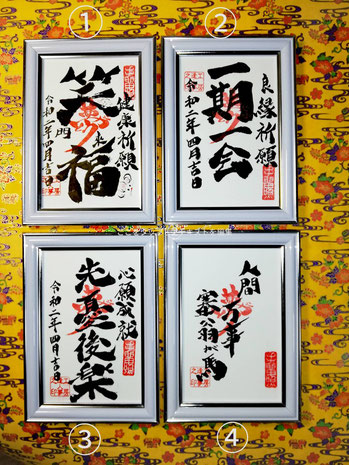 ①
健康祈願
笑門来福
令和二年四月吉日
②
良縁祈願
一期一会
令和二年四月吉日
③
心願成就
先憂後楽
令和二年四月吉日
④
人間万事
塞翁が馬